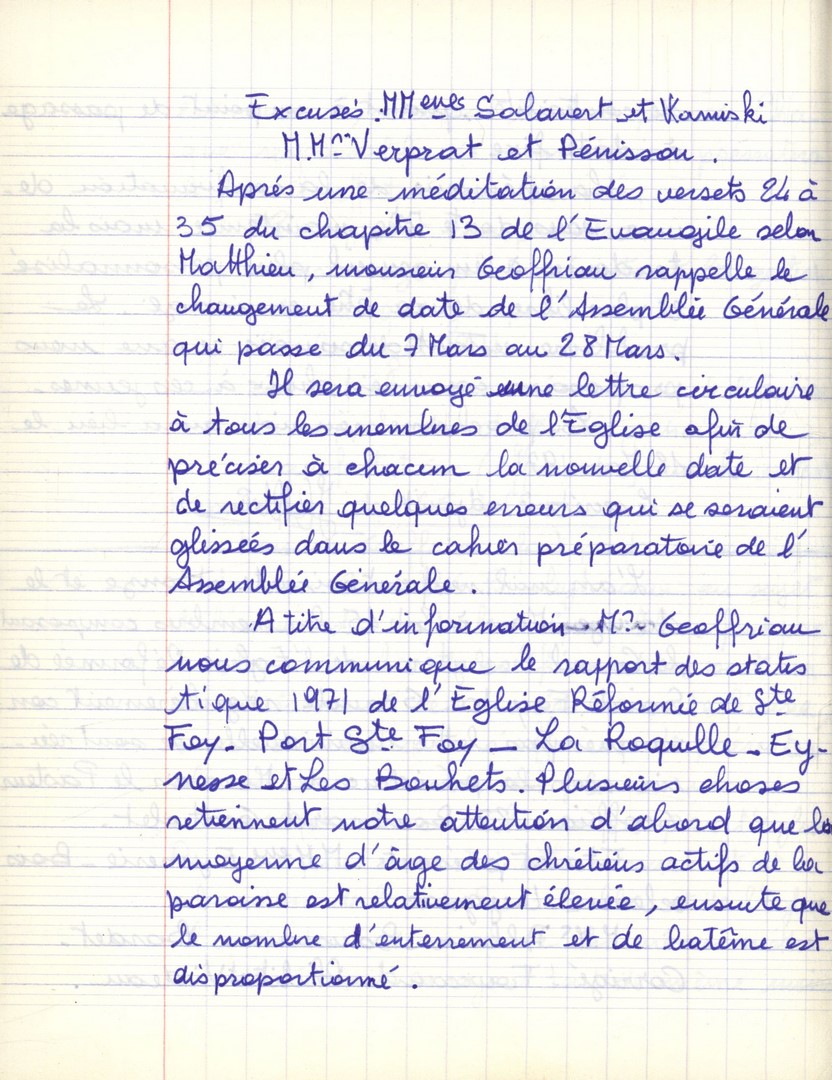 Excusés : MMemes Salavert et Kamiski
M.Mrs Verprat et Pénisson.
Aprés une méditation des versets 24 à
35 du chapitre 13 de l'Evangile selon
Matthieu, monsieur Geoffriau rappelle le
changement de date de l'Assemblée Générale
qui passe du 7 Mars au 28 Mars.
Il sera envoyé une lettre circulaire
à tous les membres de l'Eglise afin de
préciser à chacun la nouvelle date et
de rectifier quelques erreurs qui se seraient
glisseés dans le cahier préparatoire de l'
Assemblée Générale.
A titre d'information Mr Geoffriau
nous communique le rapport des statis
tique 1971 de l'Eglise Réformée de Ste
Foy - Port Ste Foy - La Roquille - Ey-
nesse et Les Bouhets. Plusieurs choses
retiennent notre attention d'abord que la
moyenne d'âge des chrétiens actifs de la
paroisse est relativement élevée, ensuite que
le nombre d'enterrement et de batême est
disproportionné.